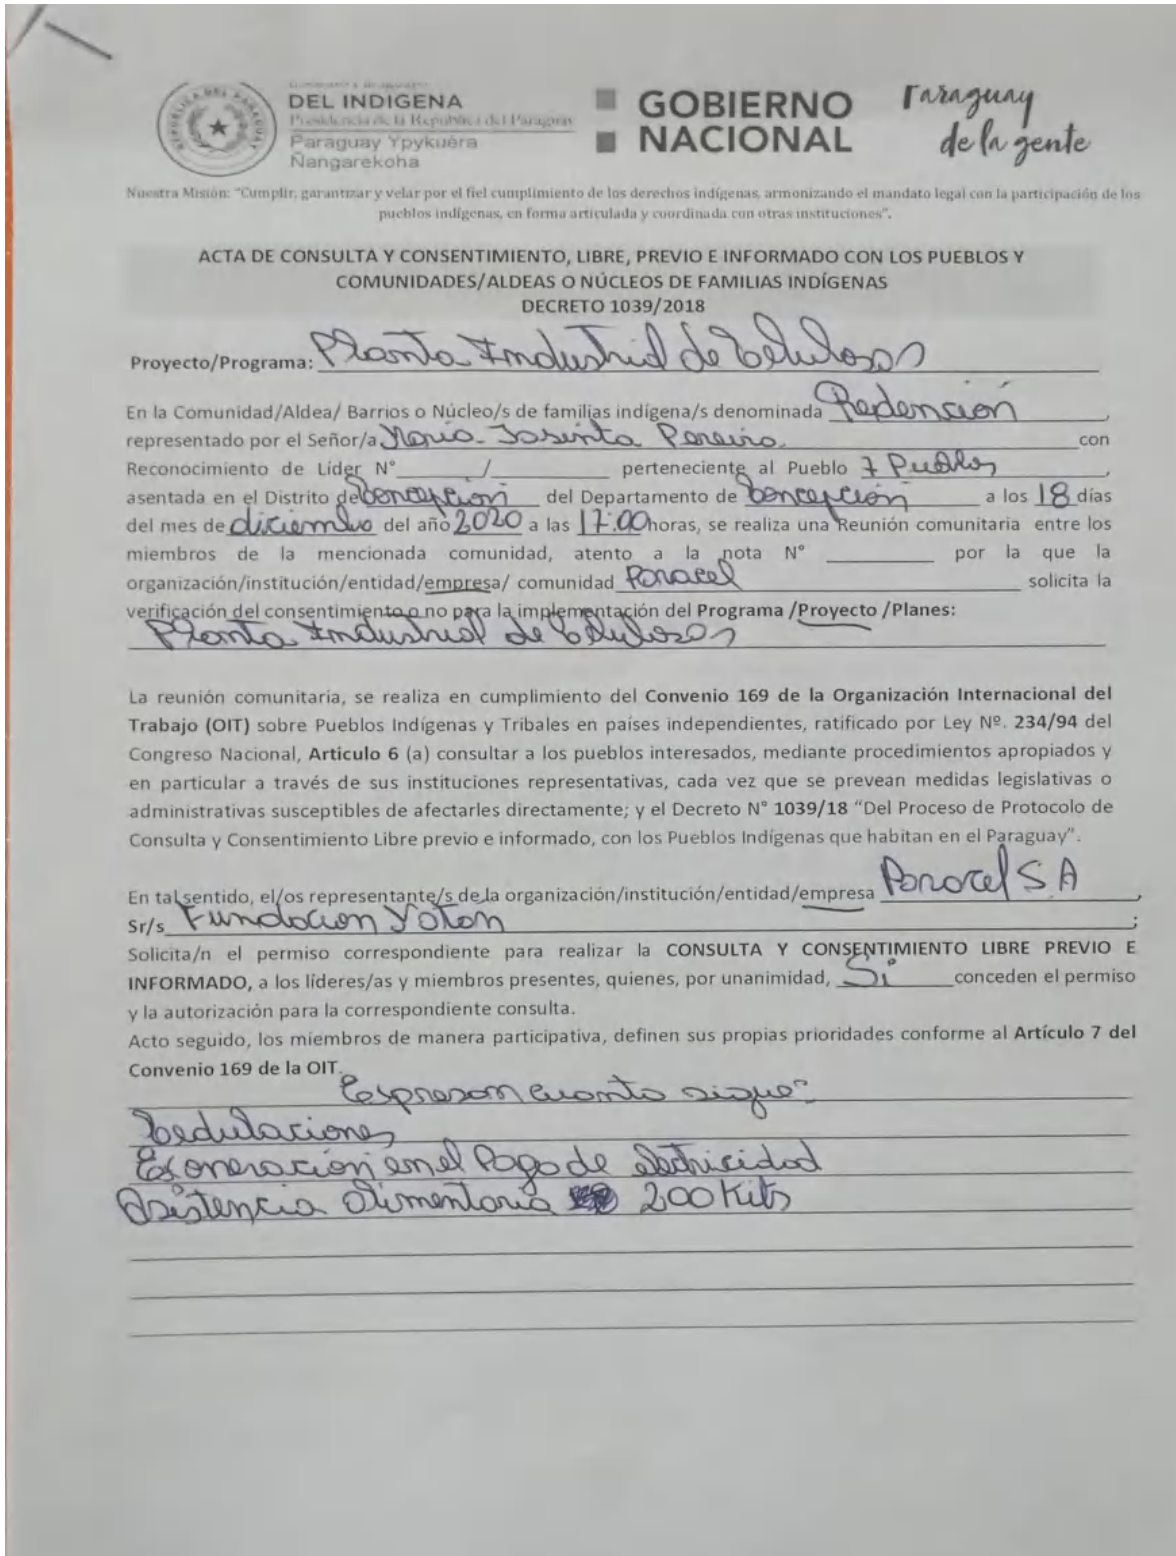 DEL INDIGENA
Presidencia de la República del Paraguay
Paraguay Ypykuéra
Ñangarekoha
REPUBLICA DEL PARAGUAY
GOBIERNO
NACIONAL
Paraguay
de la gente
Nuestra Misión: "Cumplir, garantizar y velar por el fiel cumplimiento de los derechos indígenas, armonizando el mandato legal con la participación de los
pueblos indígenas, en forma articulada y coordinada con otras instituciones".
ACTA DE CONSULTA Y CONSENTIMIENTO, LIBRE, PREVIO E INFORMADO CON LOS PUEBLOS Y
COMUNIDADES/ALDEAS O NÚCLEOS DE FAMILIAS INDÍGENAS
DECRETO 1039/2018
Proyecto/Programa: Planta Industrial de Celulosas
En la Comunidad/Aldea/ Barrios o Núcleo/s de familias indígena/s denominada Redención,
representado por el Señor/a Maria Jasinta Pereira con
Reconocimiento de Líder N° / perteneciente al Pueblo 7 Pueblos,
asentada en el Distrito de Concepción del Departamento de Concepción a los 18 días
del mes de diciembre del año 2020 a las 17:00 horas, se realiza una Reunión comunitaria entre los
miembros de la mencionada comunidad, atento a la nota N° por la que la
organización/institución/entidad/empresa/ comunidad Paracel solicita la
verificación del consentimiento o no para la implementación del Programa /Proyecto /Planes:
Planta Industrial de Celulosas
La reunión comunitaria, se realiza en cumplimiento del Convenio 169 de la Organización Internacional del
Trabajo (OIT) sobre Pueblos Indígenas y Tribales en países independientes, ratificado por Ley Nº. 234/94 del
Congreso Nacional, Artículo 6 (a) consultar a los pueblos interesados, mediante procedimientos apropiados y
en particular a través de sus instituciones representativas, cada vez que se prevean medidas legislativas o
administrativas susceptibles de afectarles directamente; y el Decreto N° 1039/18 "Del Proceso de Protocolo de
Consulta y Consentimiento Libre previo e informado, con los Pueblos Indígenas que habitan en el Paraguay".
En tal sentido, el/os representante/s de la organización/institución/entidad/empresa Paracel S A,
Sr/s Fundacion Yoton;
Solicita/n el permiso correspondiente para realizar la CONSULTA Y CONSENTIMIENTO LIBRE PREVIO E
INFORMADO, a los líderes/as y miembros presentes, quienes, por unanimidad, Si conceden el permiso
y la autorización para la correspondiente consulta.
Acto seguido, los miembros de manera participativa, definen sus propias prioridades conforme al Artículo 7 del
Convenio 169 de la OIT.
Expresan cuanto sigue:
Cedulaciones
Exoneración en el Pago de electricidad
Asistencia alimentaria 200 Kits